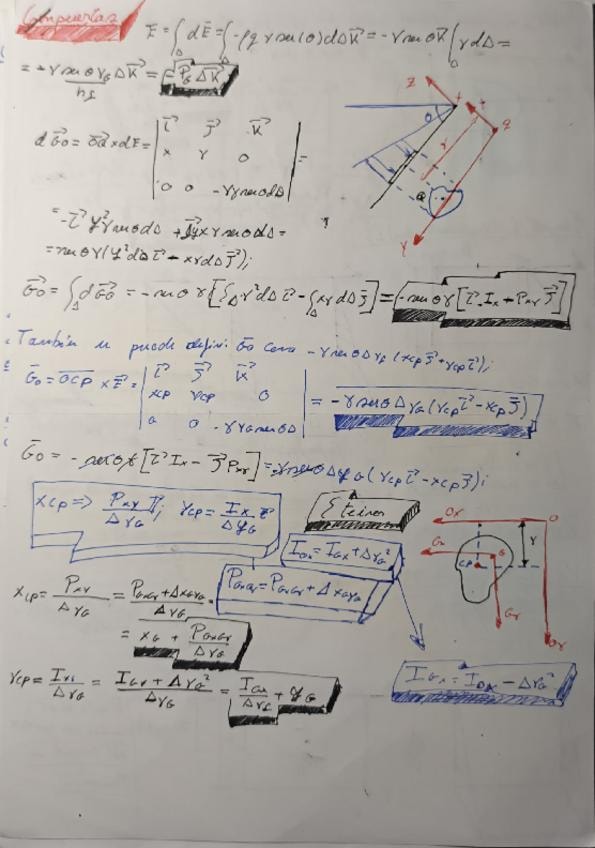 Compuertas
E⃗ = ∫_Δ dE⃗ = ∫_Δ -ρg Y sen(θ) dΔ K⃗ = -γ sen θ K⃗ ∫_Δ Y dΔ =
= -γ sen θ Y_G Δ K⃗ = -P_G Δ K⃗
h_G
Z
O
θ
dG⃗o = O⃗a × dE⃗ = | i⃗ j⃗ K⃗ |
| x Y 0 | =
| 0 0 -γ Y sen θ dΔ |
Y
= -i⃗ y² γ sen θ dΔ + j⃗ y x γ sen θ dΔ =
= sen θ γ (y² dΔ i⃗ - x y dΔ j⃗);
G⃗o = ∫_Δ dG⃗o = -sen θ γ [∫_Δ y² dΔ i⃗ - ∫_Δ xy dΔ j⃗] = -sen θ γ [i⃗ · I_x + P_xy j⃗]
También se puede definir G⃗o como -γ sen θ Δ y_G (x_cp j⃗ + y_cp i⃗);
G⃗o = O⃗CP × E⃗ = | i⃗ j⃗ K⃗ |
| x_cp y_cp 0 | = -γ sen θ Δ y_G (y_cp i⃗ - x_cp j⃗)
| 0 0 -γ y_G sen θ Δ |
G⃗o = -sen θ γ [i⃗ I_x - j⃗ P_xy] = -γ sen θ Δ y_G (y_cp i⃗ - x_cp j⃗);
x_cp => P_xy / Δy_G ; y_cp = I_x / Δy_G
Steiner
I_Ox = I_Gx + Δy_G²
P_OxOy = P_GxGy + Δ x_G y_G
Ox
O
Y
Gx
G
CP
Gy
Oy
x_cp = P_xy / Δy_G = (P_GxGy + Δ x_G y_G) / Δy_G =
= x_G + P_GxGy / Δy_G
y_cp = I_xx / Δy_G = (I_Gx + Δ y_G²) / Δy_G = I_Gx / Δy_G + y_G
I_Gx = I_Ox - Δy_G²